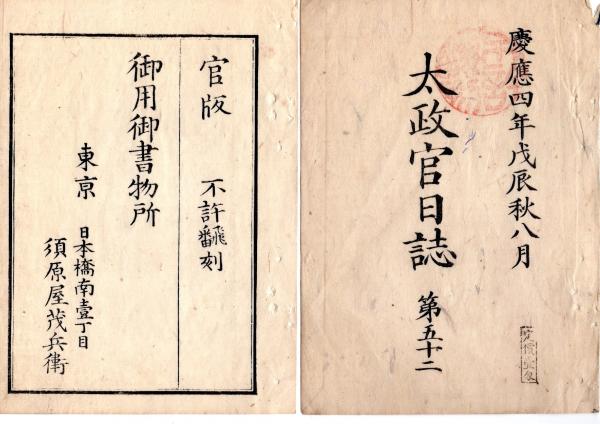 慶應四年戊辰秋八月
太政官日誌 第五十二
官版 不許飜刻
御用御書物所
東京 日本橋南壹丁目
須原屋茂兵衛